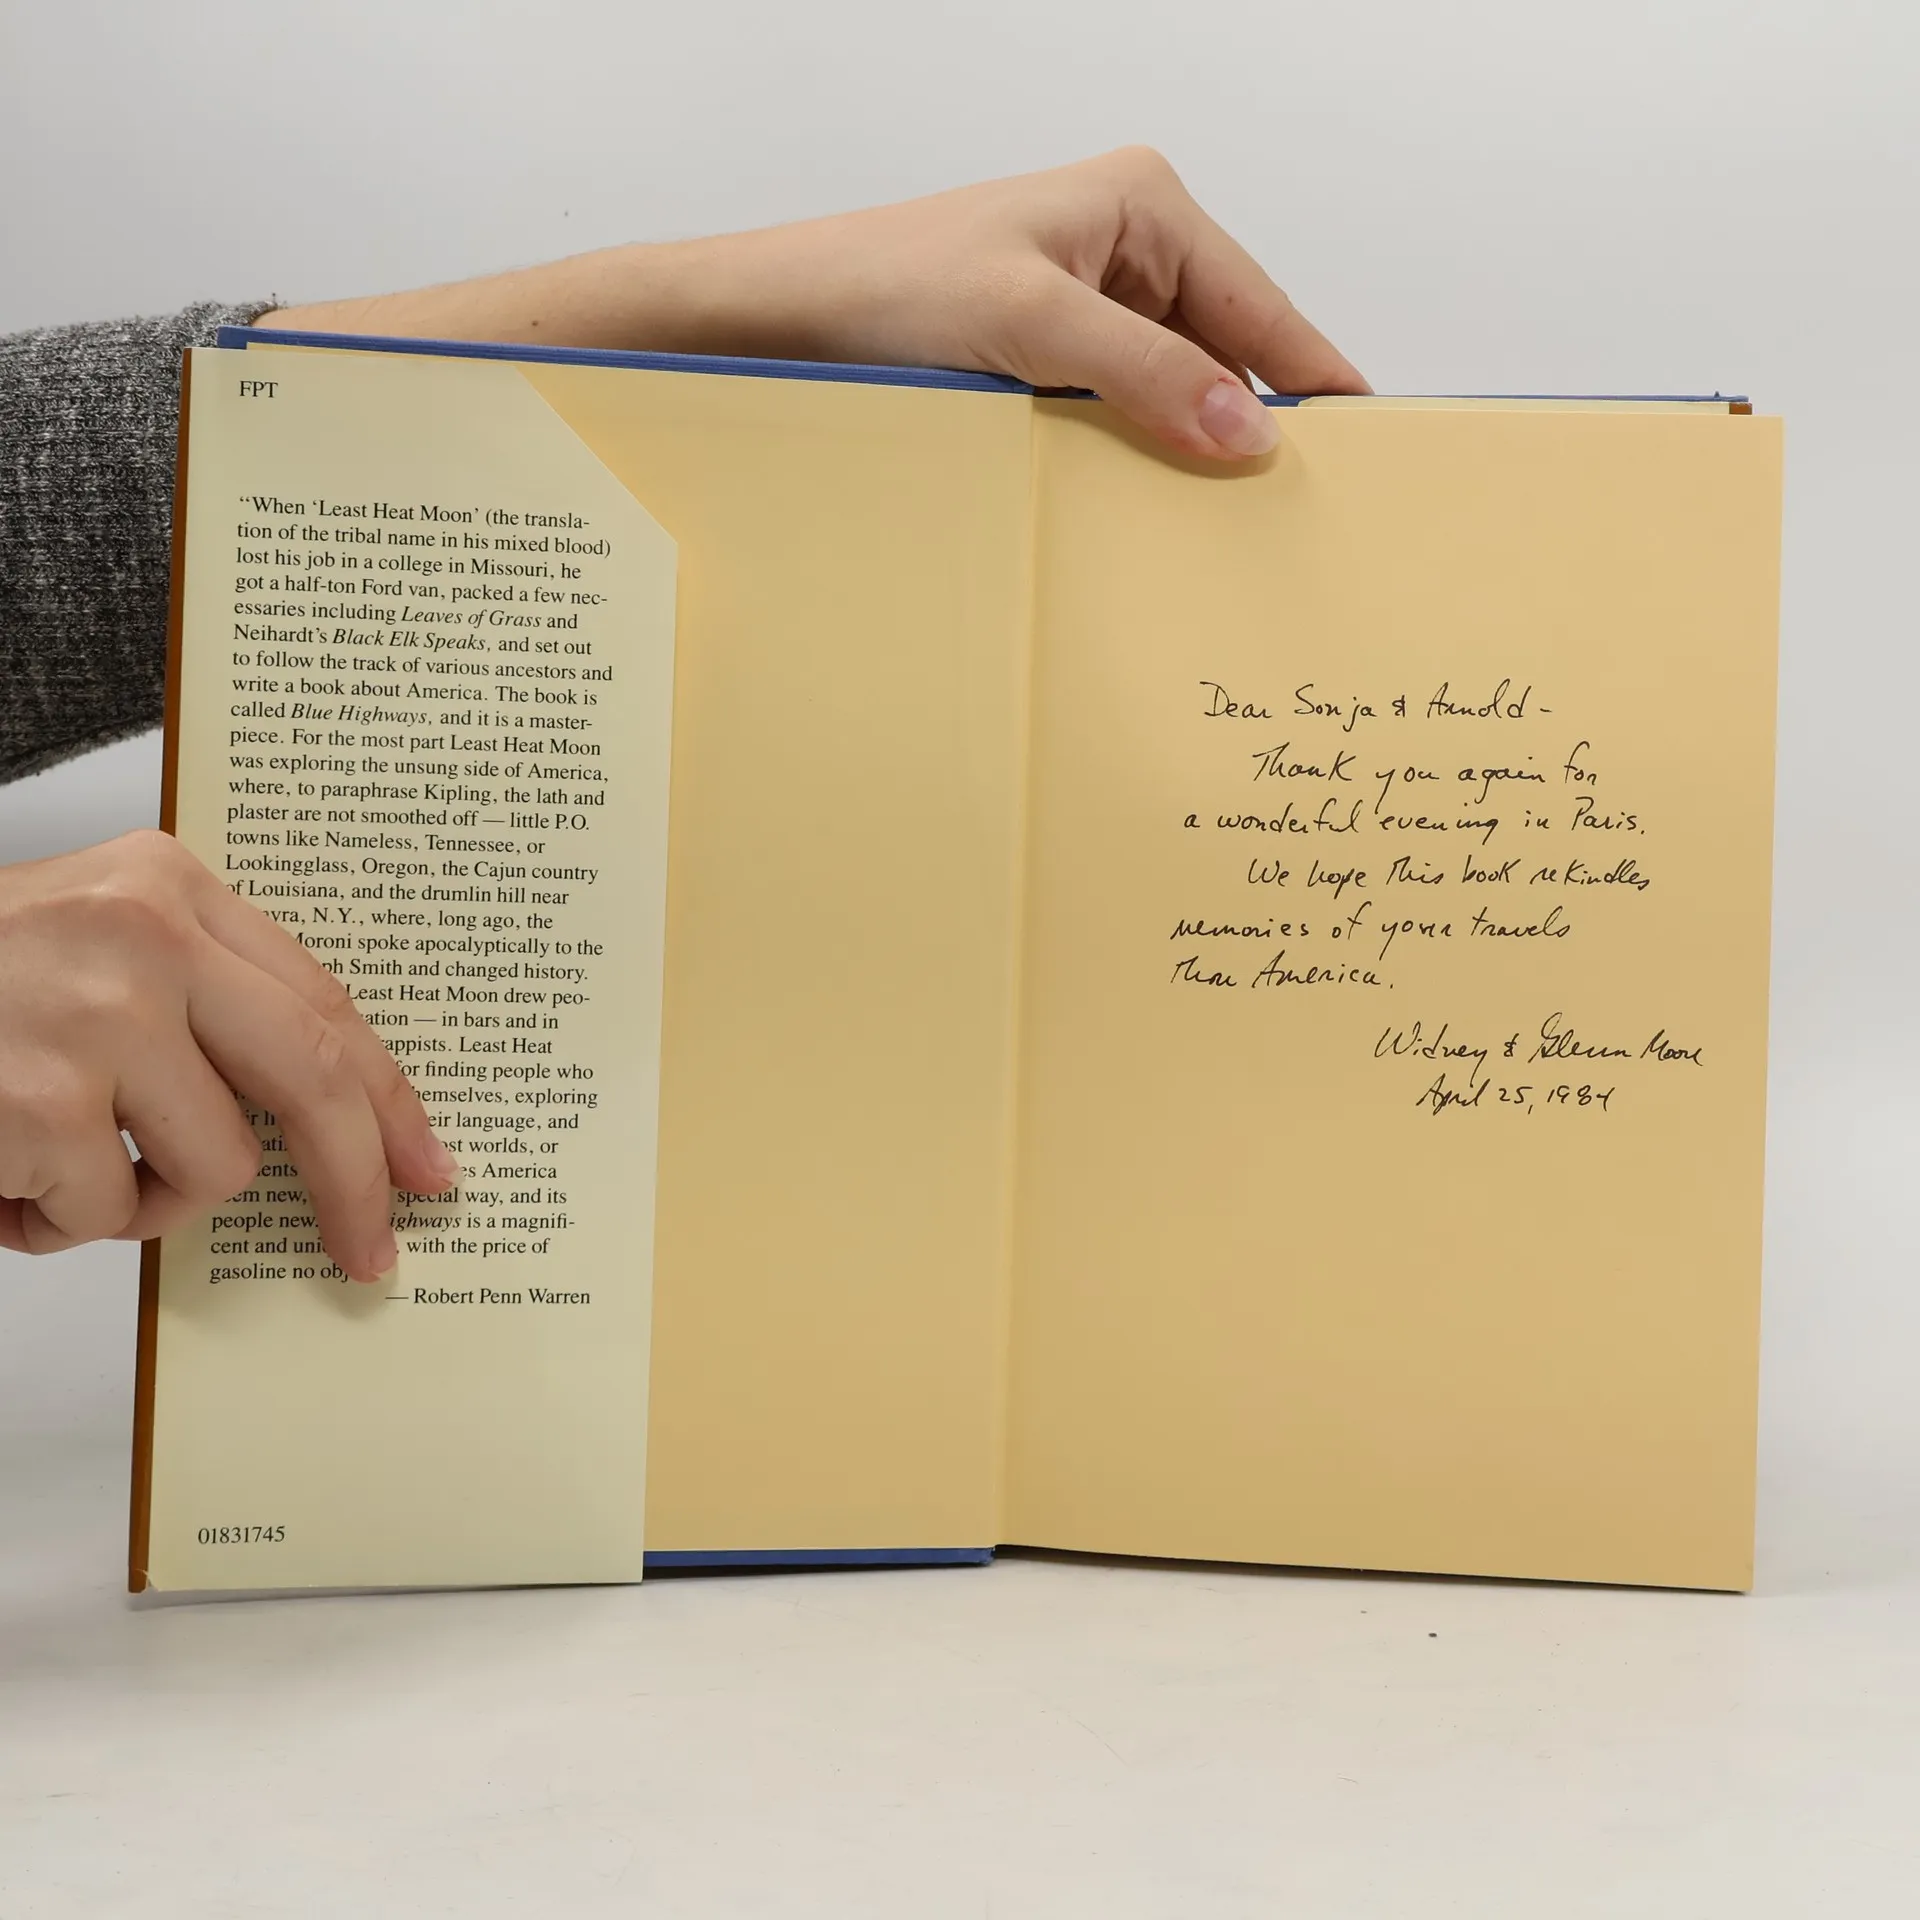 FPT
“When ‘Least Heat Moon’ (the transla-
tion of the tribal name in his mixed blood)
lost his job in a college in Missouri, he
got a half-ton Ford van, packed a few nec-
essaries including Leaves of Grass and
Neihardt’s Black Elk Speaks, and set out
to follow the track of various ancestors and
write a book about America. The book is
called Blue Highways, and it is a master-
piece. For the most part Least Heat Moon
was exploring the unsung side of America,
where, to paraphrase Kipling, the lath and
plaster are not smoothed off — little P.O.
towns like Nameless, Tennessee, or
Lookingglass, Oregon, the Cajun country
of Louisiana, and the drumlin hill near
N.Y., where, long ago, the
Moroni spoke apocalyptically to the
Smith and changed history.
Least Heat Moon drew peo-
— in bars and in
Least Heat
for finding people who
exploring
language, and
worlds, or
America
new, special way, and its
people new. is a magnifi-
cent and with the price of
gasoline no
— Robert Penn Warren
01831745
Dear Sonja & Arnold -
Thank you again for
a wonderful evening in Paris.
We hope this book rekindles
memories of your travels
thru America.
Widney & Glenn Moore
April 25, 1984